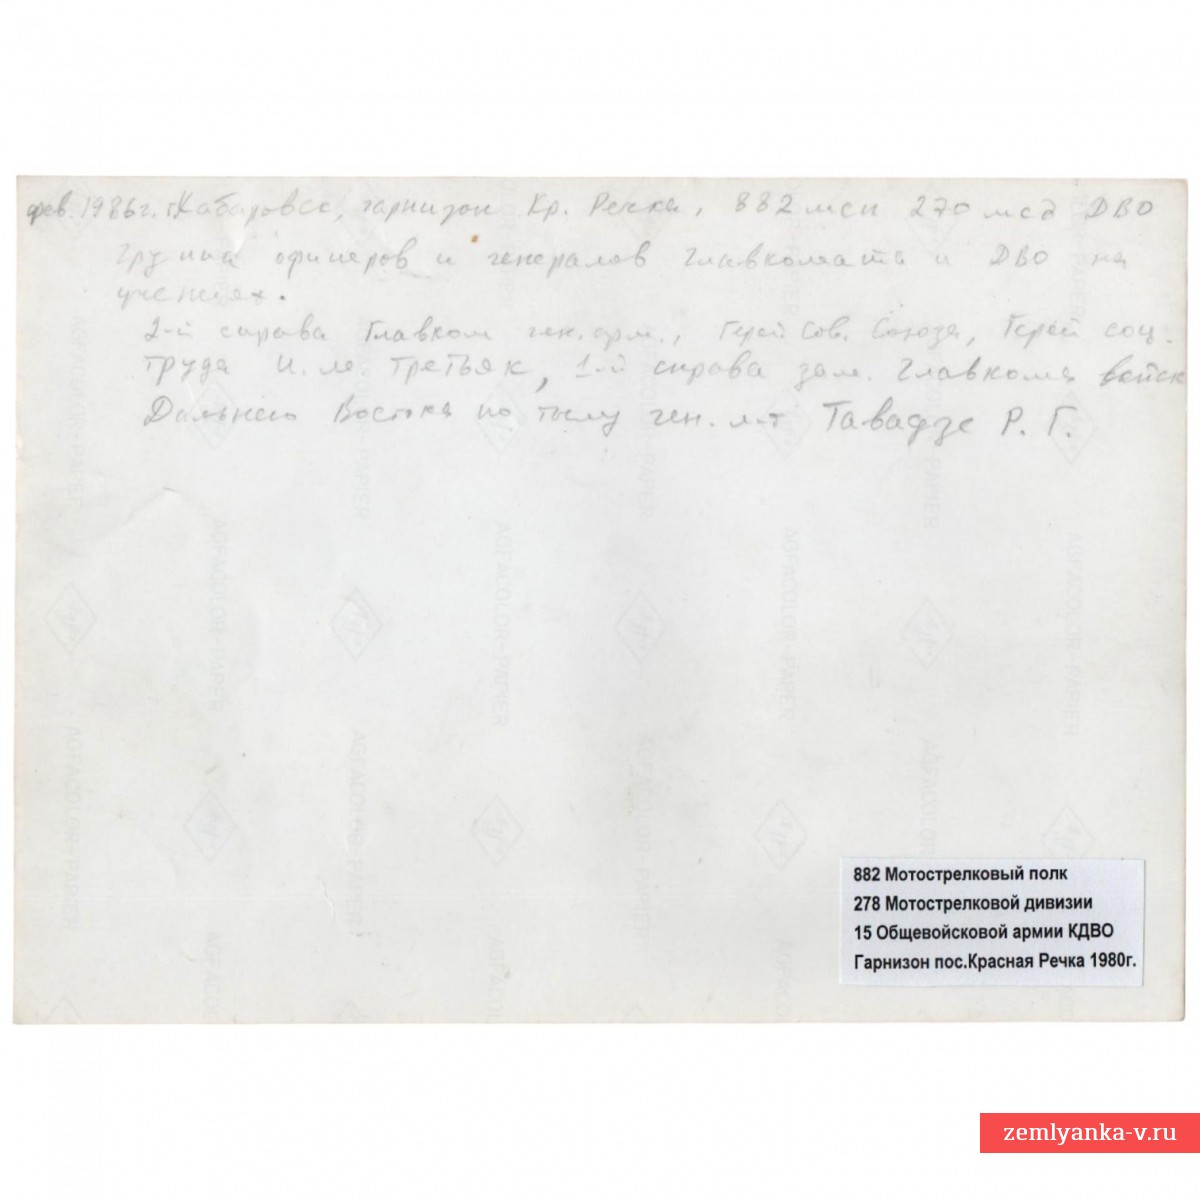 фев. 1986г. г.Хабаровск, гарнизон Кр. Речка, 882 мсп 270 мсд ДВО
группа офицеров и генералов Главкомата и ДВО на
учениях.
2-й справа Главком ген. арм., Герой Сов. Союза, Герой соц.
труда И. М Третьяк, 1-й справа зам. Главкома войск
Дальнего Востока по тылу ген. л-т Тавадзе Р. Г.
AGFACOLOR-PAPIER
882 Мотострелковый полк
278 Мотострелковой дивизии
15 Общевойсковой армии КДВО
Гарнизон пос.Красная Речка 1980г.
zemlyanka-v.ru